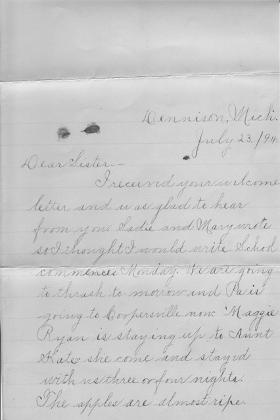 Dennison, Mich.
July 23. /94.
Dear Sister.-
I received your welcome
letter and was glad to hear
from you Sadie and Mary wrote
so I thought I would write School
commences Monday. We are going
to thrash to morrow and Pa is
going to Coopersville now. Maggie
Ryan is staying up to Aunt
Kates she come and stayed
with us three or four nights.
The apples are almost ripe